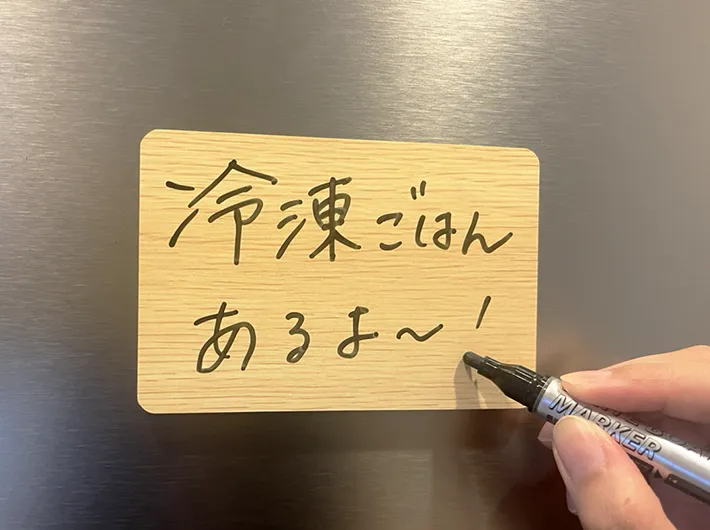 冷凍ごはん
あるよ〜!
MARKER